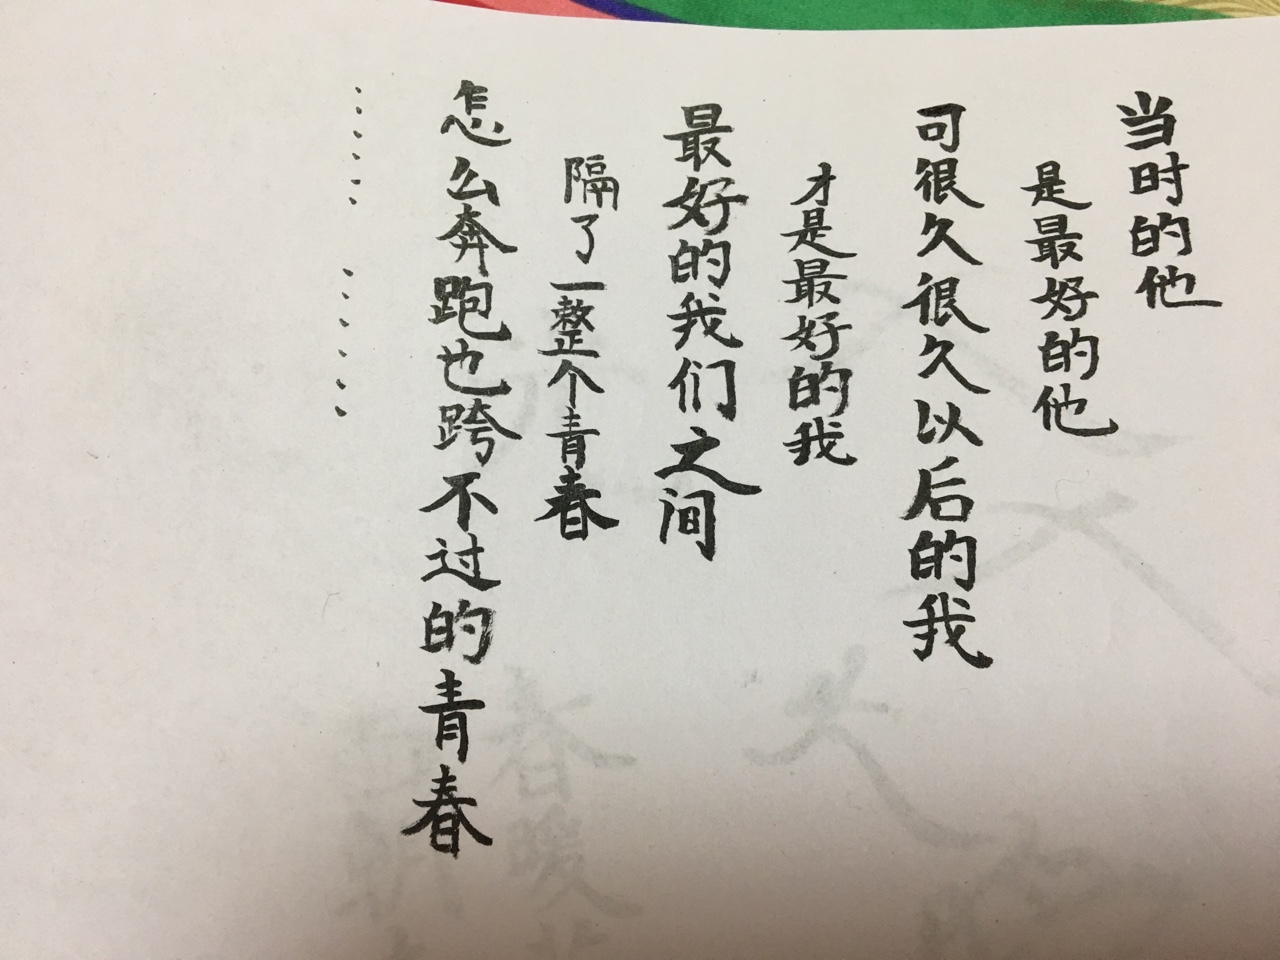 当时的他
是最好的他
可很久很久以后的我
才是最好的我
最好的我们之间
隔了一整个青春
怎么奔跑也跨不过的青春
…………